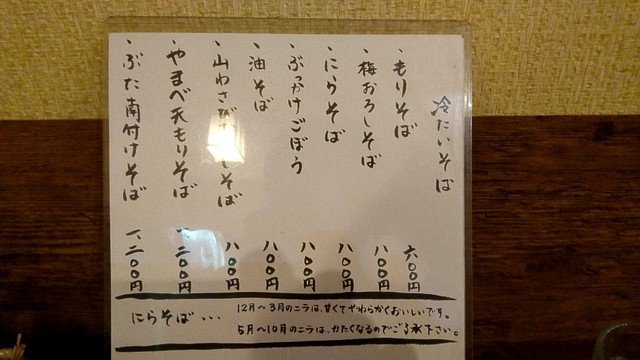 冷たいそば
・もりそば 六〇〇円
・梅おろしそば 八〇〇円
・にらそば 八〇〇円
・ぶっかけごぼう 八〇〇円
・油そば 八〇〇円
・山わさび しそば 八〇〇円
・やまべ天もりそば 一、二〇〇円
・ぶた南付けそば 一、二〇〇円
にらそば・・・
12月〜3月のニラは、甘くてやわらかくおいしいです。
5月〜10月のニラは、かたくなるのでご了承下さい。